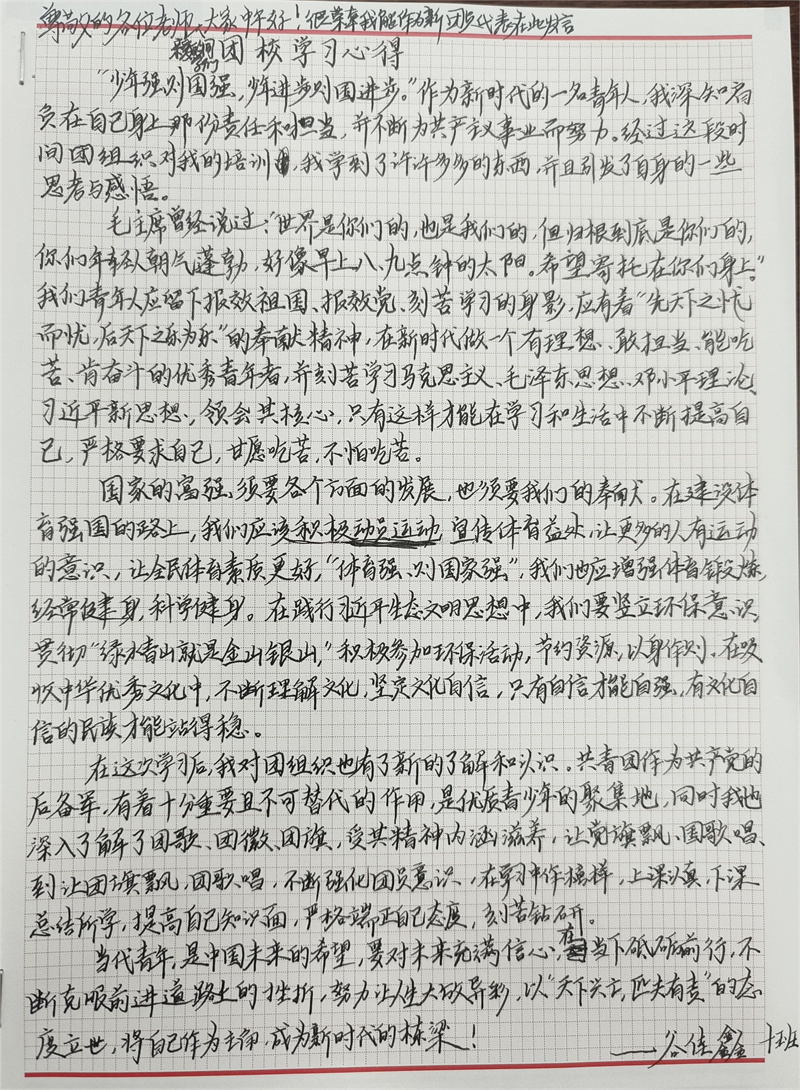 尊敬的各位老师、大家中午好！很荣幸我能作为新团员代表在此发言
团校学习心得
“少年强则国强，少年进步则国进步。”作为新时代的一名青年人，我深知肩
负在自己身上那份责任和担当，并不断为共产主义事业而努力。经过这段时
间团组织对我的培训，我学到了许许多多的东西，并且引发了自身的一些
思考与感悟。
毛主席曾经说过：“世界是你们的，也是我们的，但归根到底是你们的，
你们年轻人朝气蓬勃，好像早上八、九点钟的太阳。希望寄托在你们身上。”
我们青年人应留下报效祖国、报效党、刻苦学习的身影，应有着“先天下之忧
而忧，后天下之乐为乐”的奉献精神，在新时代做一个有理想、敢担当、能吃
苦、肯奋斗的优秀青年者，并刻苦学习马克思主义、毛泽东思想、邓小平理论、
习近平新思想，领会其核心，只有这样才能在学习和生活中不断提高自
己，严格要求自己，甘愿吃苦，不怕吃苦。
国家的富强、须要各个方面的发展，也须要我们的奉献。在建设体
育强国的路上，我们应该积极动员运动，宣传体育益处，让更多的人有运动
的意识，让全民体育素质更好，“体育强、则国家强”，我们也应增强体育锻炼，
经常健身，科学健身。在践行习近平生态文明思想中，我们要竖立环保意识，
贯彻“绿水青山就是金山银山，”积极参加环保活动，节约资源，以身作则。在吸
收中华优秀文化中，不断理解文化，坚定文化自信，只有自信才能自强，有文化自
信的民族才能站得稳。
在这次学习后，我对团组织也有了新的了解和认识。共青团作为共产党的
后备军，有着十分重要且不可替代的作用，是优质青少年的聚集地，同时我也
深入了解了团歌、团徽、团旗，受其精神内涵滋养，让党旗飘、国歌唱、
到让团旗飘，团歌唱，不断强化团员意识，在学习中作榜样，上课认真，下课
总结所学，提高自己知识面，严格端正自己态度，刻苦钻研。
当代青年，是中国未来的希望，要对未来充满信心，在当下砥砺前行，不
断克服前进道路上的挫折，努力让人生大放异彩，以“天下兴亡，匹夫有责”的态
度立世，将自己作为主角，成为新时代的栋梁！
——谷佳鑫 十班